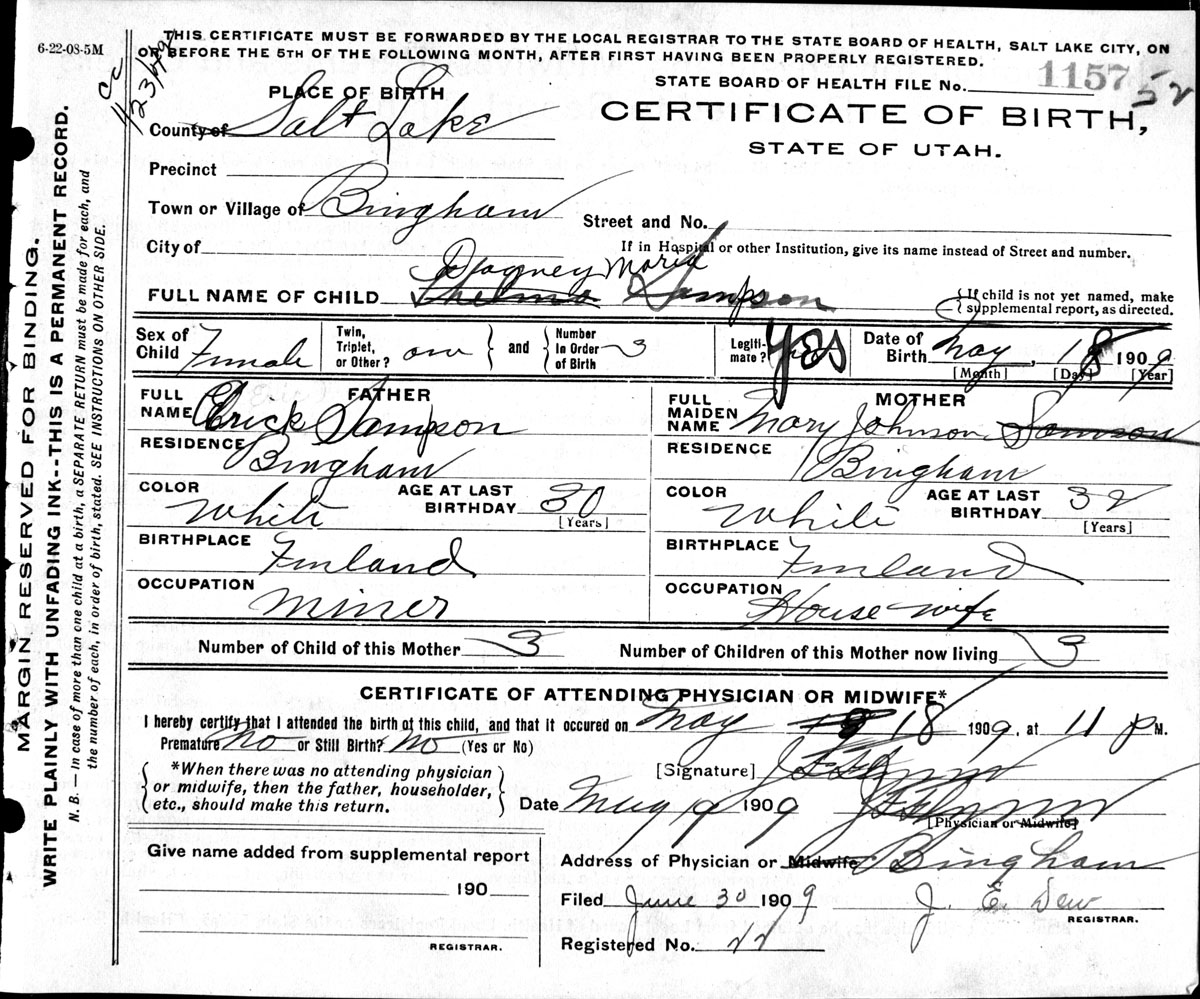 6-22-08-5M
THIS CERTIFICATE MUST BE FORWARDED BY THE LOCAL REGISTRAR TO THE STATE BOARD OF HEALTH, SALT LAKE CITY, ON
OR BEFORE THE 5TH OF THE FOLLOWING MONTH, AFTER FIRST HAVING BEEN PROPERLY REGISTERED.
STATE BOARD OF HEALTH FILE No. 1157 52
PLACE OF BIRTH
CERTIFICATE OF BIRTH,
STATE OF UTAH.
County of Salt Lake
Precinct
Town or Village of Bingham
Street and No.
City of
If in Hospital or other Institution, give its name instead of Street and number.
Dagney Maria
FULL NAME OF CHILD Thelma Sampson
If child is not yet named, make
supplemental report, as directed.
Sex of Child Female
Twin, Triplet, or Other? one and Number in Order of Birth 3
Legitimate? YES
Date of Birth May, 18 1909
[Month] [Day] [Year]
FATHER
FULL NAME Erick Sampson
RESIDENCE Bingham
COLOR White AGE AT LAST BIRTHDAY 30
[Years]
BIRTHPLACE Finland
OCCUPATION Miner
MOTHER
FULL MAIDEN NAME Mary Johnson Samson
RESIDENCE Bingham
COLOR White AGE AT LAST BIRTHDAY 32
[Years]
BIRTHPLACE Finland
OCCUPATION House wife
Number of Child of this Mother 3 Number of Children of this Mother now living 3
CERTIFICATE OF ATTENDING PHYSICIAN OR MIDWIFE*
I hereby certify that I attended the birth of this child, and that it occured on May 18 1909, at 11 P M.
Premature No or Still Birth? No (Yes or No)
*When there was no attending physician
or midwife, then the father, householder,
etc., should make this return.
[Signature] J F Flynn
Date May 19 1909 J F Flynn
[Physician or Midwife]
Give name added from supplemental report
190
REGISTRAR.
Address of Physician or Midwife Bingham
Filed June 30 1909 J. E. Dew
REGISTRAR.
Registered No. 22
MARGIN RESERVED FOR BINDING.
WRITE PLAINLY WITH UNFADING INK--THIS IS A PERMANENT RECORD.
N. B. — In case of more than one child at a birth, a SEPARATE RETURN must be made for each, and
the number of each, in order of birth, stated. SEE INSTRUCTIONS ON OTHER SIDE.